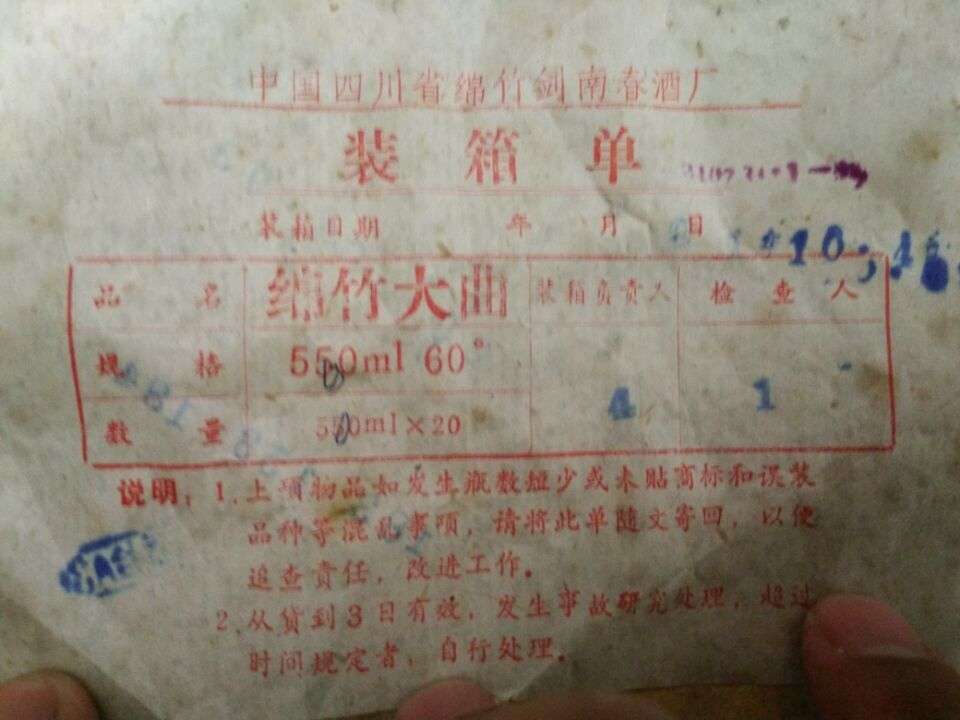 中国四川省绵竹剑南春酒厂
装箱单
装箱日期 年 月 日
10
品名 绵竹大曲 装箱负责人 检查人
规格 550ml 60°
4 1
数量 550ml×20
说明：1.上项物品如发生瓶数短少或未贴商标和误装
品种等混乱事项，请将此单随文寄回，以便
追查责任，改进工作。
2.从货到3日有效，发生事故研究处理，超过
时间规定者，自行处理。